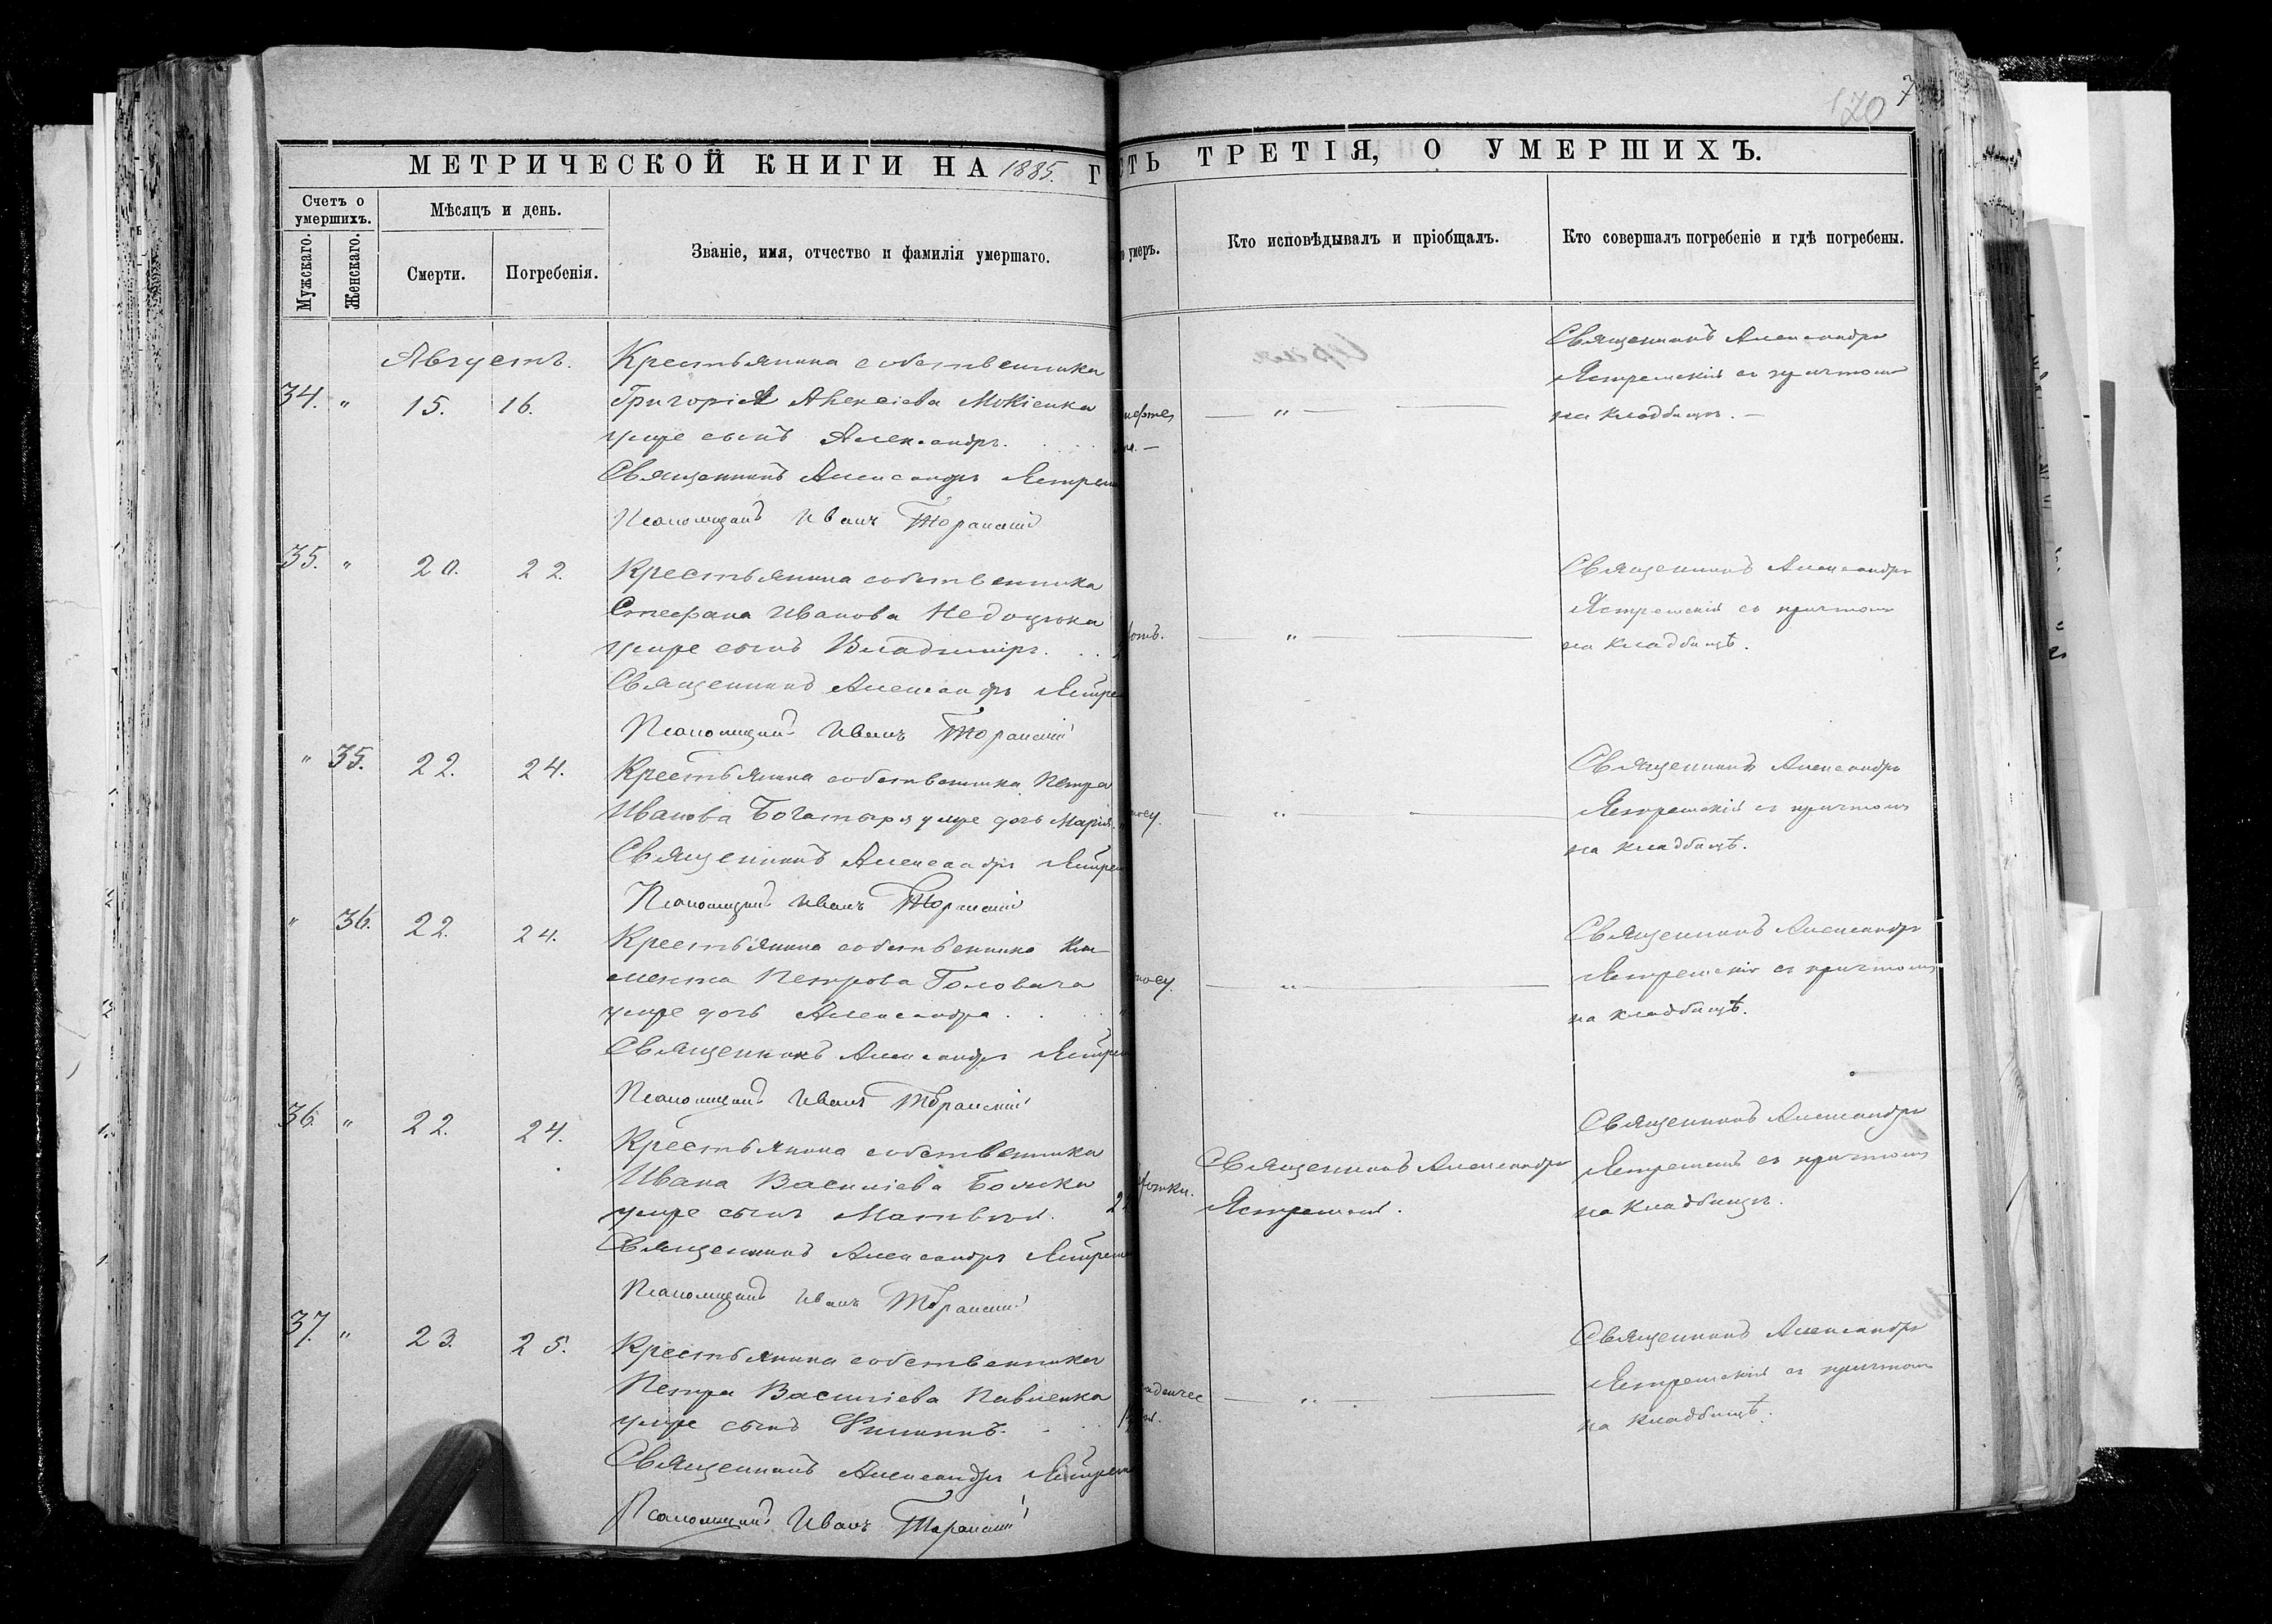 170
7
МЕТРИЧЕСКОЙ КНИГИ НА 1885. Г
СТЬ ТРЕТІЯ, О УМЕРШИХЪ.
Счетъ о умершихъ.
Мужскаго.
Женскаго.
Мѣсяцъ и день.
Смерти.
Погребенія.
Званіе, имя, отчество и фамилія умершаго.
умеръ.
Кто исповѣдывалъ и пріобщалъ.
Кто совершалъ погребеніе и гдѣ погребены.
Августъ.
34. " 15. 16.
Крестьянина собственника
Григорія Алексіева Мокіенка
умре сынъ Александръ.
Священникъ Александръ
Псаломщикъ Иванъ
"
Священникъ Александръ
Ястремскій съ причтомъ
на кладбищѣ. —
35. " 20. 22.
Крестьянина собственника
Стефана Иванова Недоцюка
умре сынъ Владиміръ.
Священникъ Александръ
Псаломщикъ Иванъ
"
Священникъ Александръ
Ястремскій съ причтомъ
на кладбищѣ.
" 35. 22. 24.
Крестьянина собственника Петра
Иванова Богатыря умре дочь Марія.
Священникъ Александръ
Псаломщикъ Иванъ
"
Священникъ Александръ
Ястремскій съ причтомъ
на кладбищѣ.
" 36. 22. 24.
Крестьянина собственника Кли-
мента Петрова Головача
умре дочь Александра.
Священникъ Александръ
Псаломщикъ Иванъ
"
Священникъ Александръ
Ястремскій съ причтомъ
на кладбищѣ.
36. " 22. 24.
Крестьянина собственника
Ивана Василіева
умре сынъ Матвѣй.
Священникъ Александръ
Псаломщикъ Иванъ
Священникъ Александръ
Ястремскій.
Священникъ Александръ
Ястремскій съ причтомъ
на кладбищѣ.
37. " 23. 25.
Крестьянина собственника
Петра Василіева Павленка
умре сынъ Филиппъ.
Священникъ Александръ
Псаломщикъ Иванъ
"
Священникъ Александръ
Ястремскій съ причтомъ
на кладбищѣ.